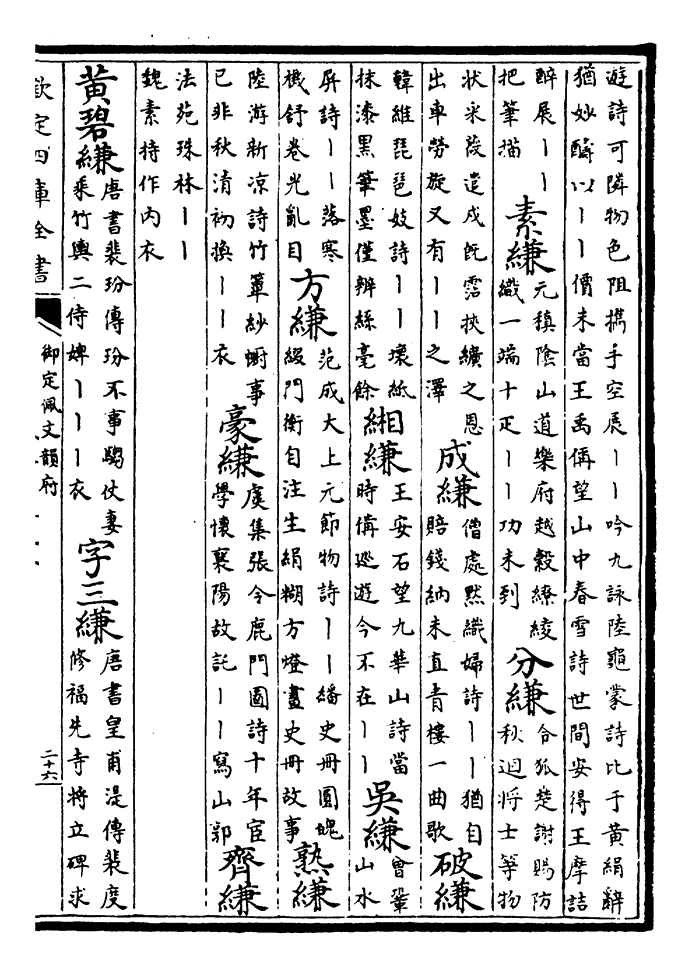 遊詩可隣物色阻攜手空展丨丨吟九詠陸龜蒙詩比于黃絹辭
猶妙酬以丨丨價未當王禹偁望山中春雪詩世間安得王摩詰
醉展丨丨
把筆描
素縑
元稹陰山道樂府越縠繚綾
織一端十疋丨丨功未到
分縑
令狐楚謝賜防
秋迴將士等物
狀采段遣戍既霑挾纊之恩
出車勞旋又有丨丨之澤
成縑
僧處默織婦詩丨丨猶自
賠錢納未直青樓一曲歌
破縑
韓維琵琶妓詩丨丨壞紙
抹漆黑筆墨僅辨絲毫餘
緗縑
王安石望九華山詩當
時備巡遊今不在丨丨
吳縑
曾鞏
山水
屏詩丨丨落寒
機舒卷光亂目
方縑
范成大上元節物詩丨丨繙史冊圓魄
綴門衡自注生絹糊方燈畫史冊故事
熟縑
陸游新凉詩竹簟紗幮事
已非秋清初換丨丨衣
豪縑
虞集張令鹿門圖詩十年宦
學懷襄陽故託丨丨寫山郭
齊縑
法苑珠林丨丨
魏素持作內衣
黃碧縑
唐書裴玢傳玢不事騶仗妻
乘竹輿二侍婢丨丨丨衣
字三縑
唐書皇甫湜傳裴度
修福先寺將立碑求
欽定四庫全書
御定佩文韻府
二十六